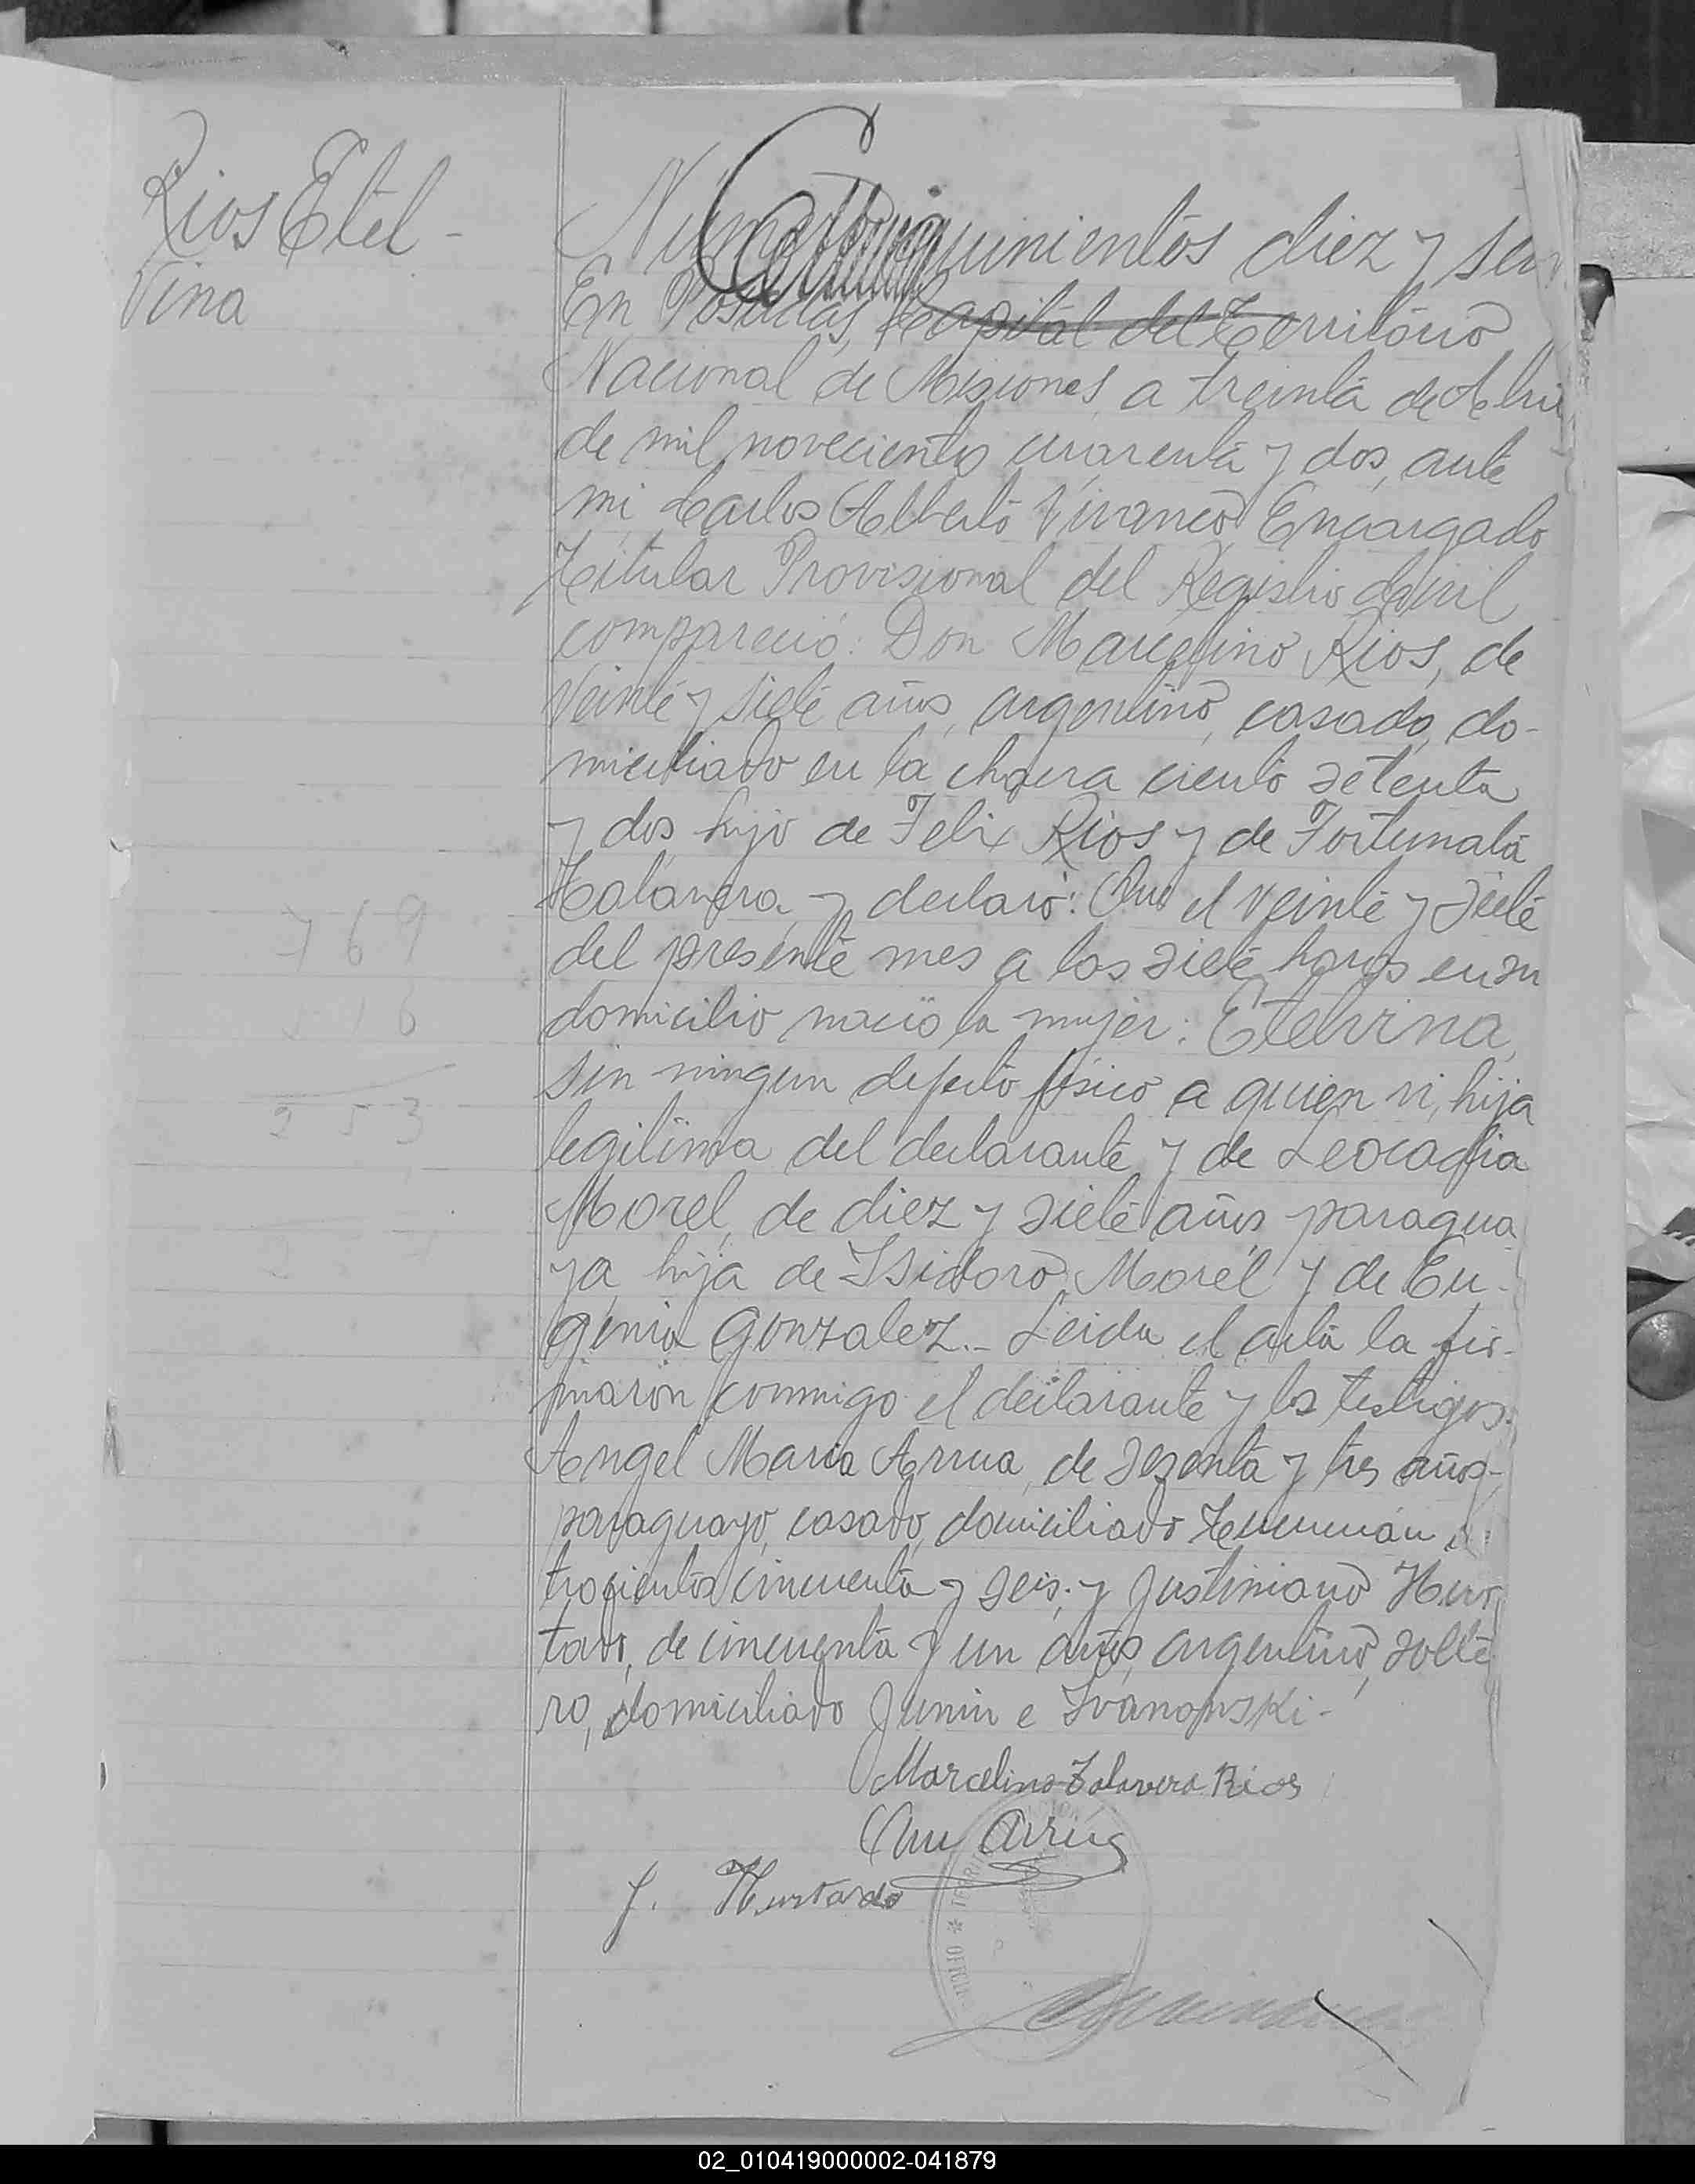 Rios Etel-
vina
Número quinientos diez y seis
En Posadas, Capital del Territorio
Nacional de Misiones a treinta de Abril
de mil novecientos cuarenta y dos, ante
mi Carlos Alberto Vivanco Encargado
Titular Provisional del Registro Civil
compareció: Don Marcelino Rios, de
veinte y siete años, argentino, casado, do-
miciliado en la chacra ciento setenta
y dos hijo de Felix Rios y de Fortunata
Talavera, y declaró: Que el veinte y siete
del presente mes a las siete horas en su
domicilio nació la mujer: Etelvina,
sin ningun defecto físico a quien vi, hija
legítima del declarante y de Leocadia
Morel, de diez y siete años, paragua
ya, hija de Isidoro Morel y de Eu-
genia Gonzalez.- Leida el acta la fir-
maron conmigo el declarante y los testigos:
Angel Maria Arrua, de sesenta y tres años,
paraguayo, casado, domiciliado Tucumán
trocientos cincuenta y seis; y Justiniano Hur
tado, de cincuenta y un años, argentino, solte
ro, domiciliado Junin e Ivanowski-
Marcelino Talavera Rios
Arrúa
J. Hurtado
769
516
253
TERRI
OFICI
02_010419000002-041879